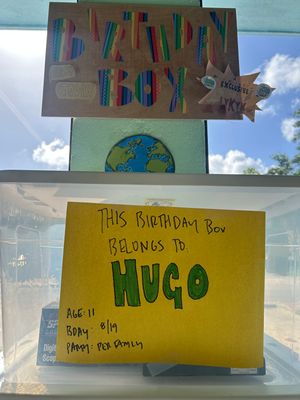 BIRTHDAY
BOY
EXCLUSIVE!
THIS BIRTHDAY BOX
BELONGS TO
HUGO
AGE: 11
BDAY: 8/19
PARTY: PER FAMILY
Digit
Scop